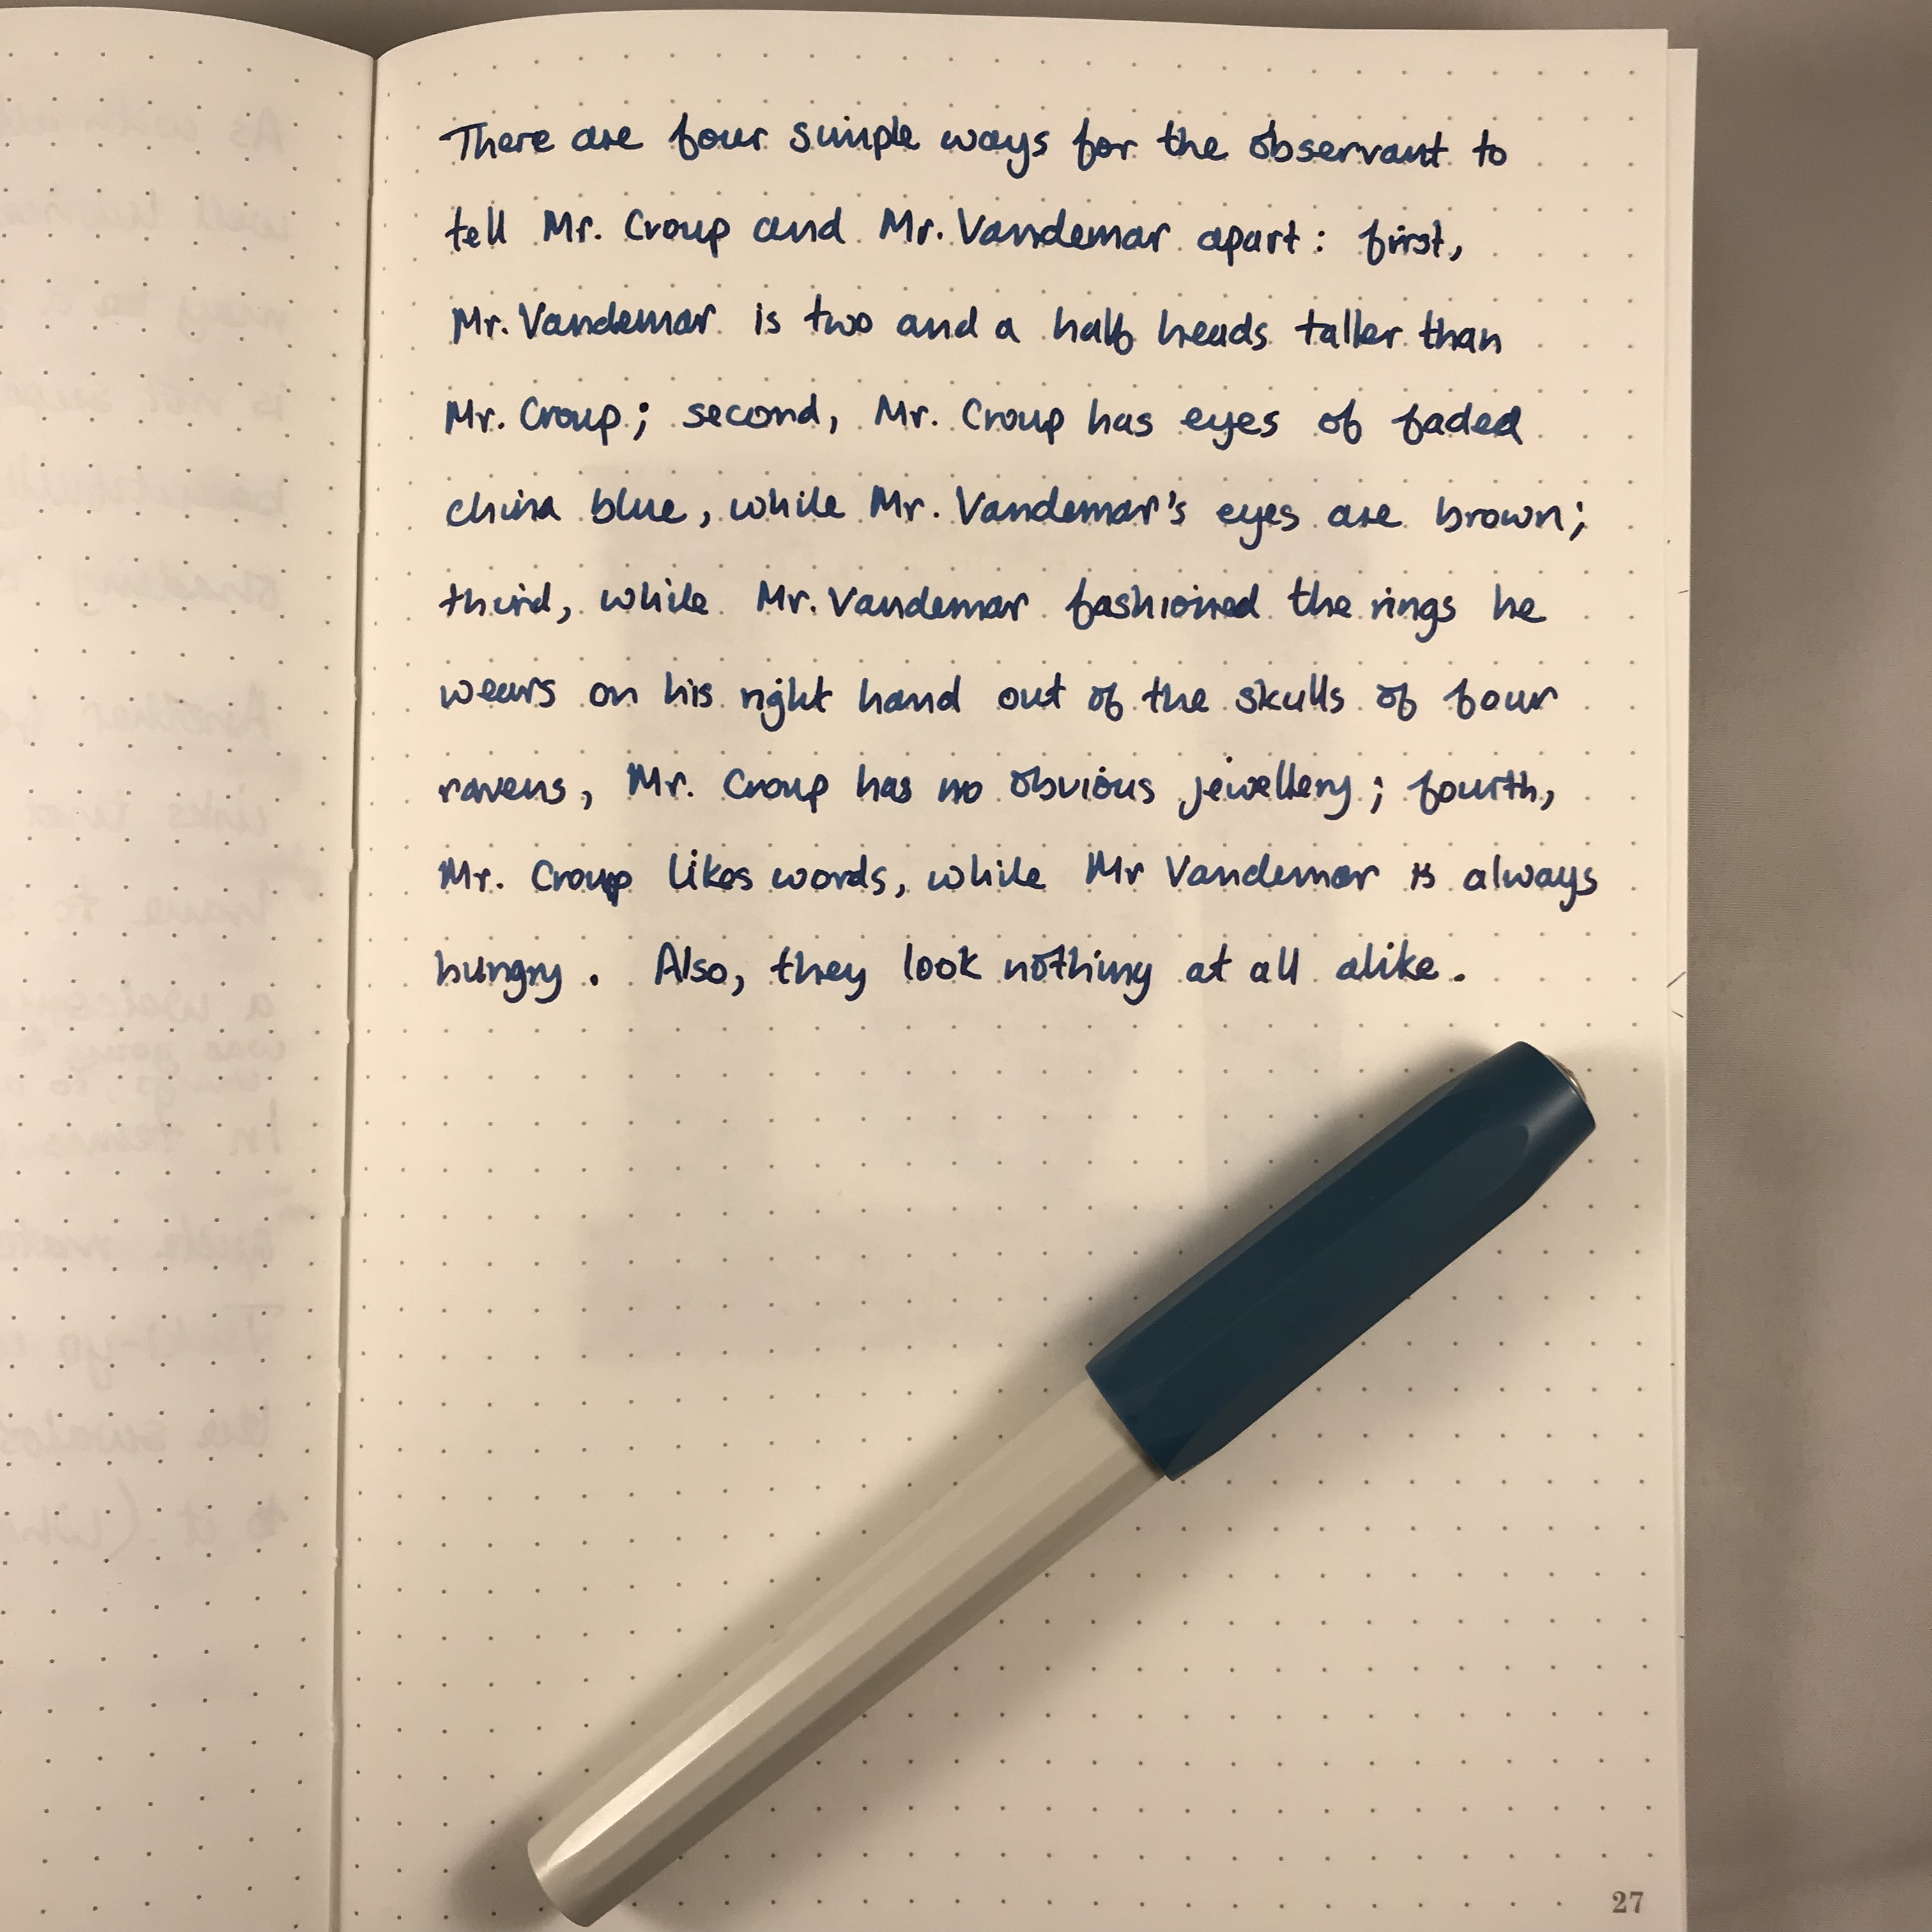 There are four simple ways for the observant to
tell Mr. Croup and Mr. Vandemar apart: first,
Mr. Vandemar is two and a half heads taller than
Mr. Croup; second, Mr. Croup has eyes of faded
china blue, while Mr. Vandemar's eyes are brown;
third, while Mr. Vandemar fashioned the rings he
wears on his right hand out of the skulls of four
ravens, Mr. Croup has no obvious jewellery; fourth,
Mr. Croup likes words, while Mr Vandemar is always
hungry. Also, they look nothing at all alike.
27